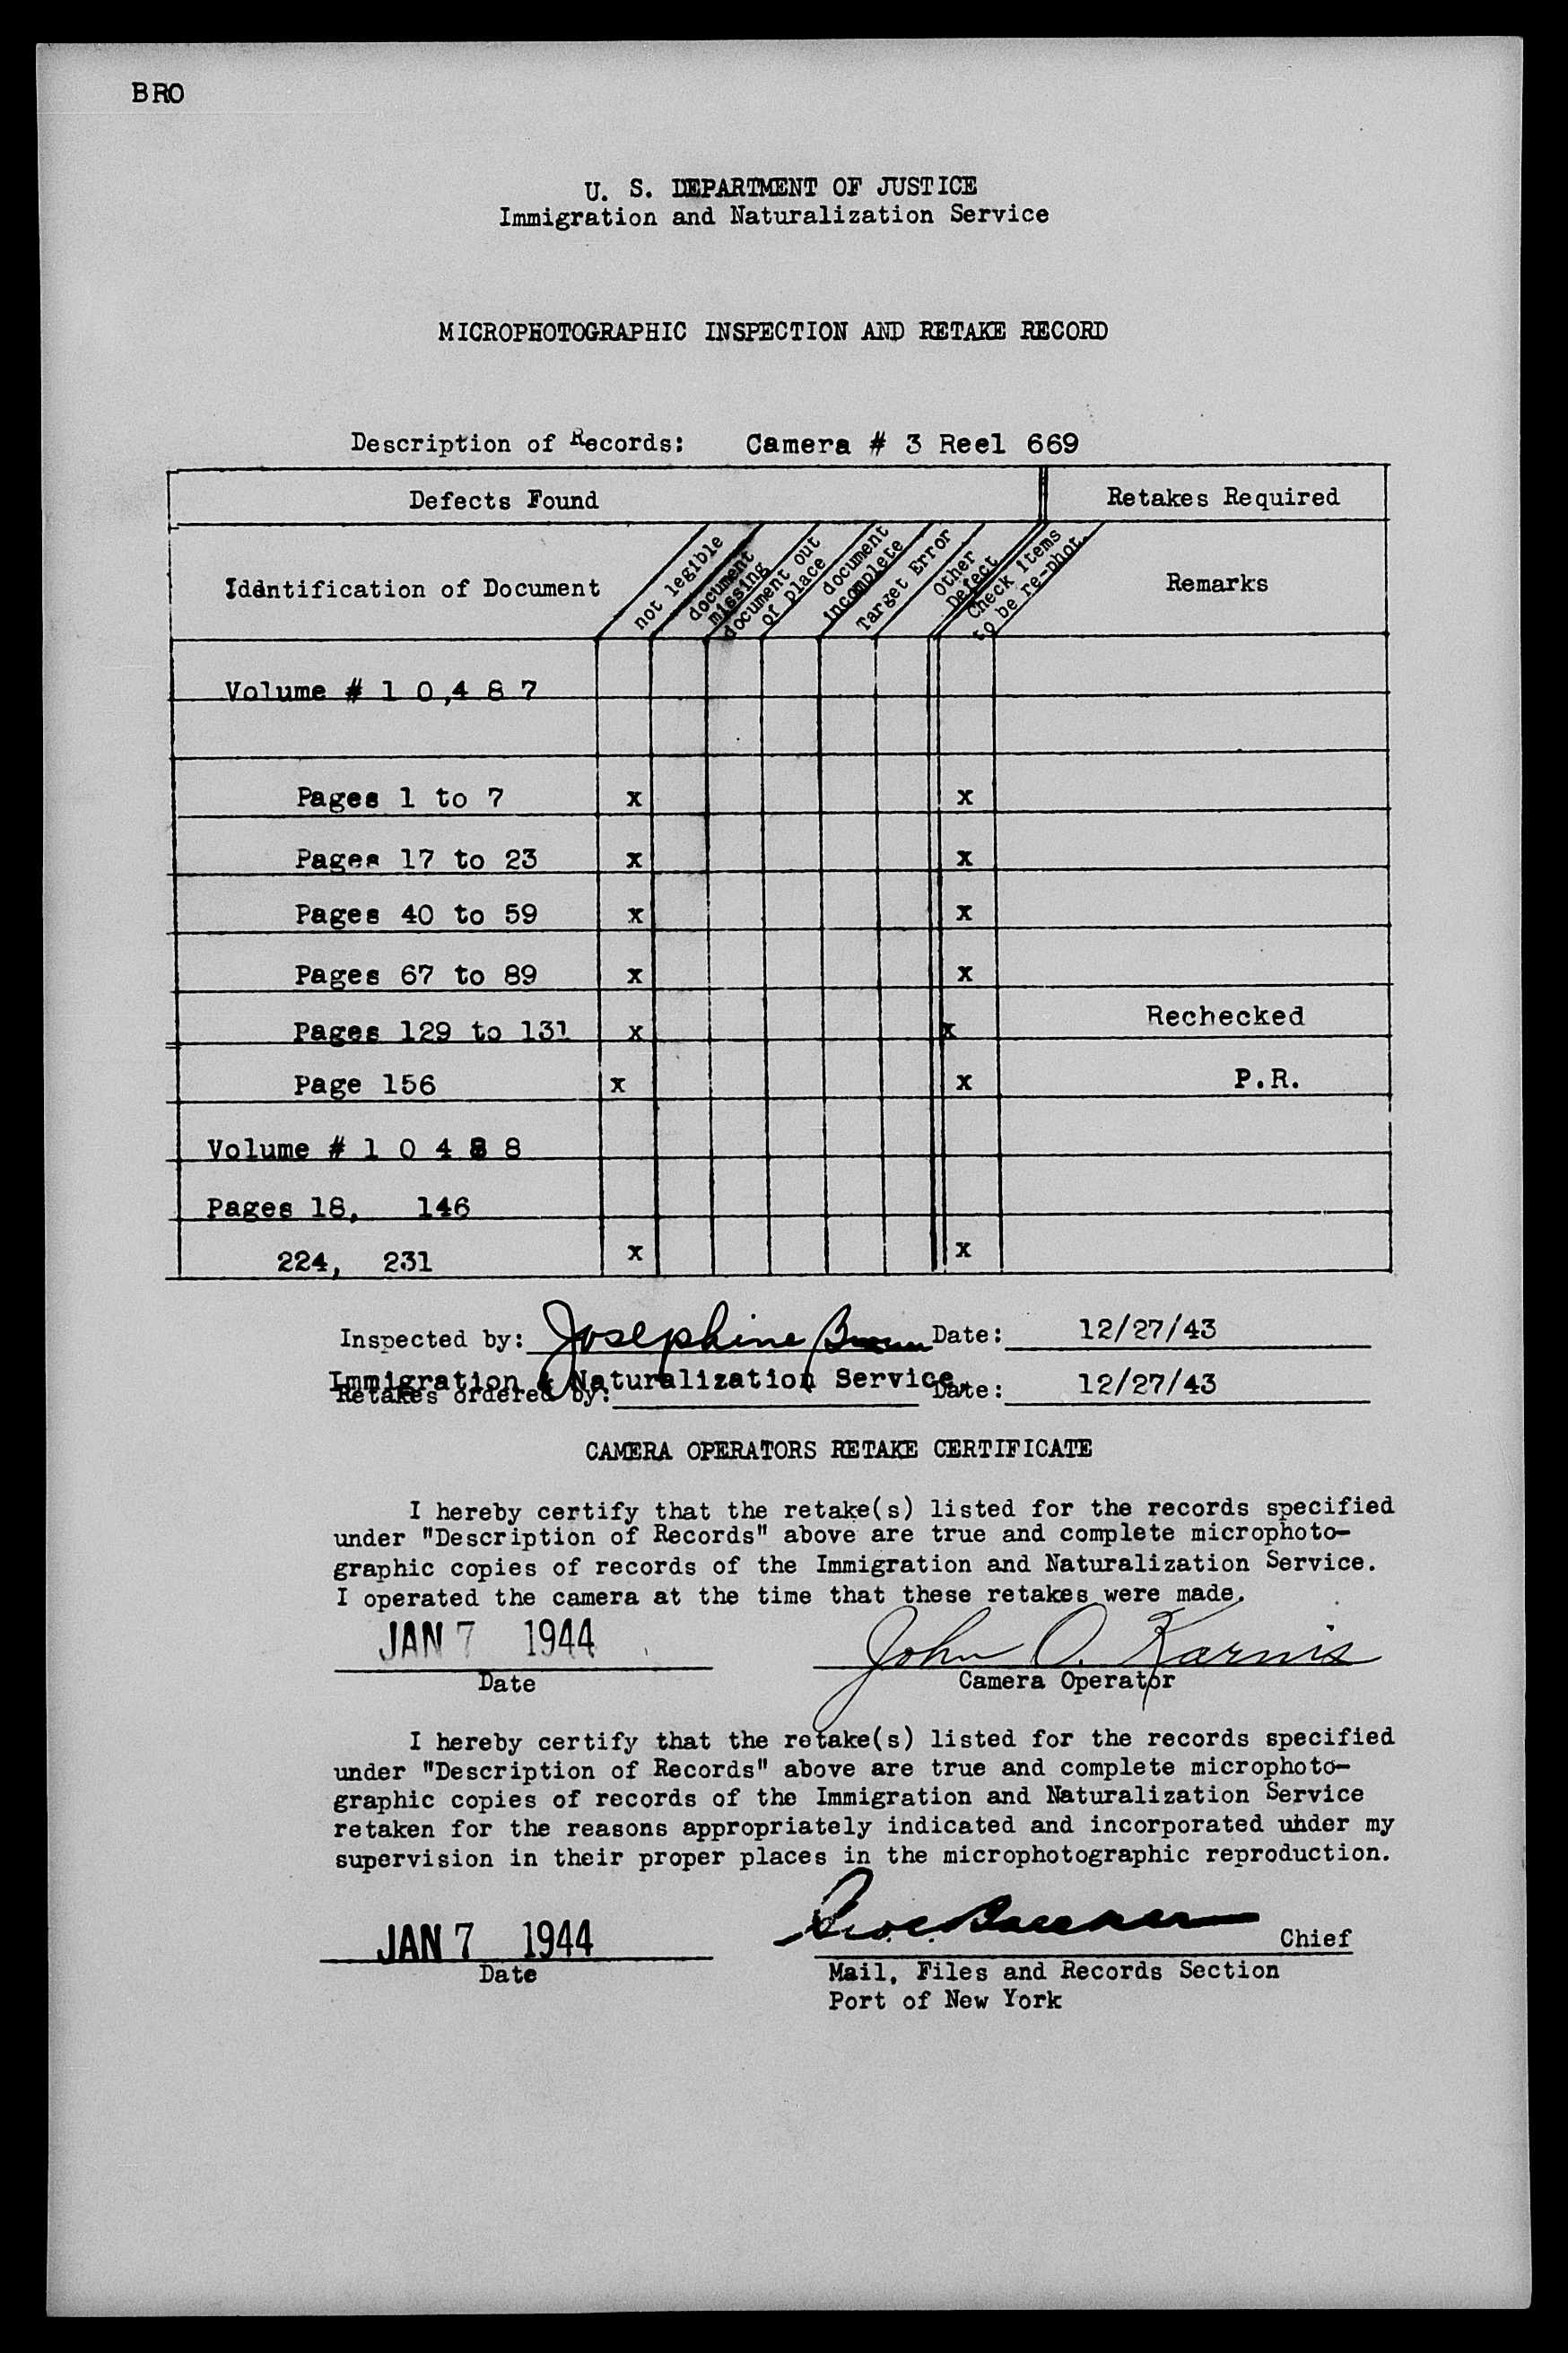 BRO
U. S. DEPARTMENT OF JUSTICE
Immigration and Naturalization Service
MICROPHOTOGRAPHIC INSPECTION AND RETAKE RECORD
Description of Records: Camera # 3 Reel 669
Defects Found Retakes Required
Identification of Document
not legible
document
missing
document out
of place
document
incomplete
Target Error
Other
Defect
Check items
to be re-phot.
Remarks
Volume # 1 0,4 8 7
Pages 1 to 7 x x
Pages 17 to 23 x x
Pages 40 to 59 x x
Pages 67 to 89 x x
Pages 129 to 131 x x Rechecked
Page 156 x x P.R.
Volume # 1 0 4 8 8
Pages 18, 146
224, 231 x x
Inspected by: Josephine Brown Date: 12/27/43
Immigration & Naturalization Service,
Retakes ordered by: Date: 12/27/43
CAMERA OPERATORS RETAKE CERTIFICATE
I hereby certify that the retake(s) listed for the records specified
under "Description of Records" above are true and complete microphoto-
graphic copies of records of the Immigration and Naturalization Service.
I operated the camera at the time that these retakes were made.
JAN 7 1944 John O. Karnis
Date Camera Operator
I hereby certify that the retake(s) listed for the records specified
under "Description of Records" above are true and complete microphoto-
graphic copies of records of the Immigration and Naturalization Service
retaken for the reasons appropriately indicated and incorporated under my
supervision in their proper places in the microphotographic reproduction.
JAN 7 1944 Chief
Date Mail, Files and Records Section
Port of New York